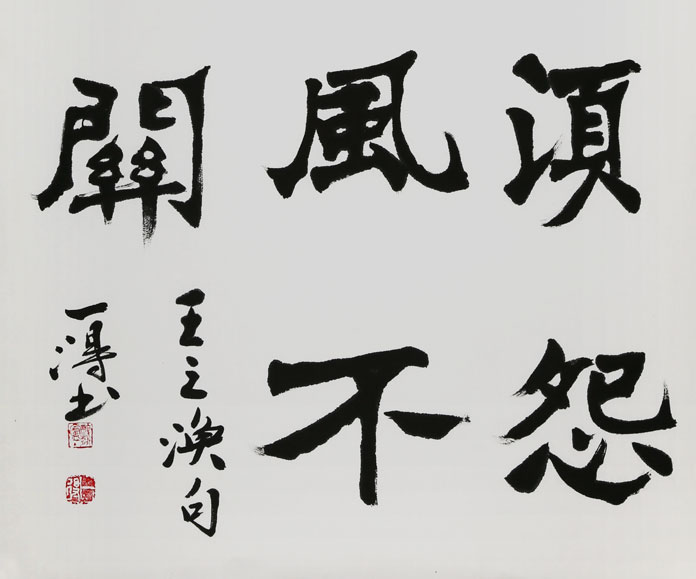 湏怨
風不
關
王之渙句
一得书